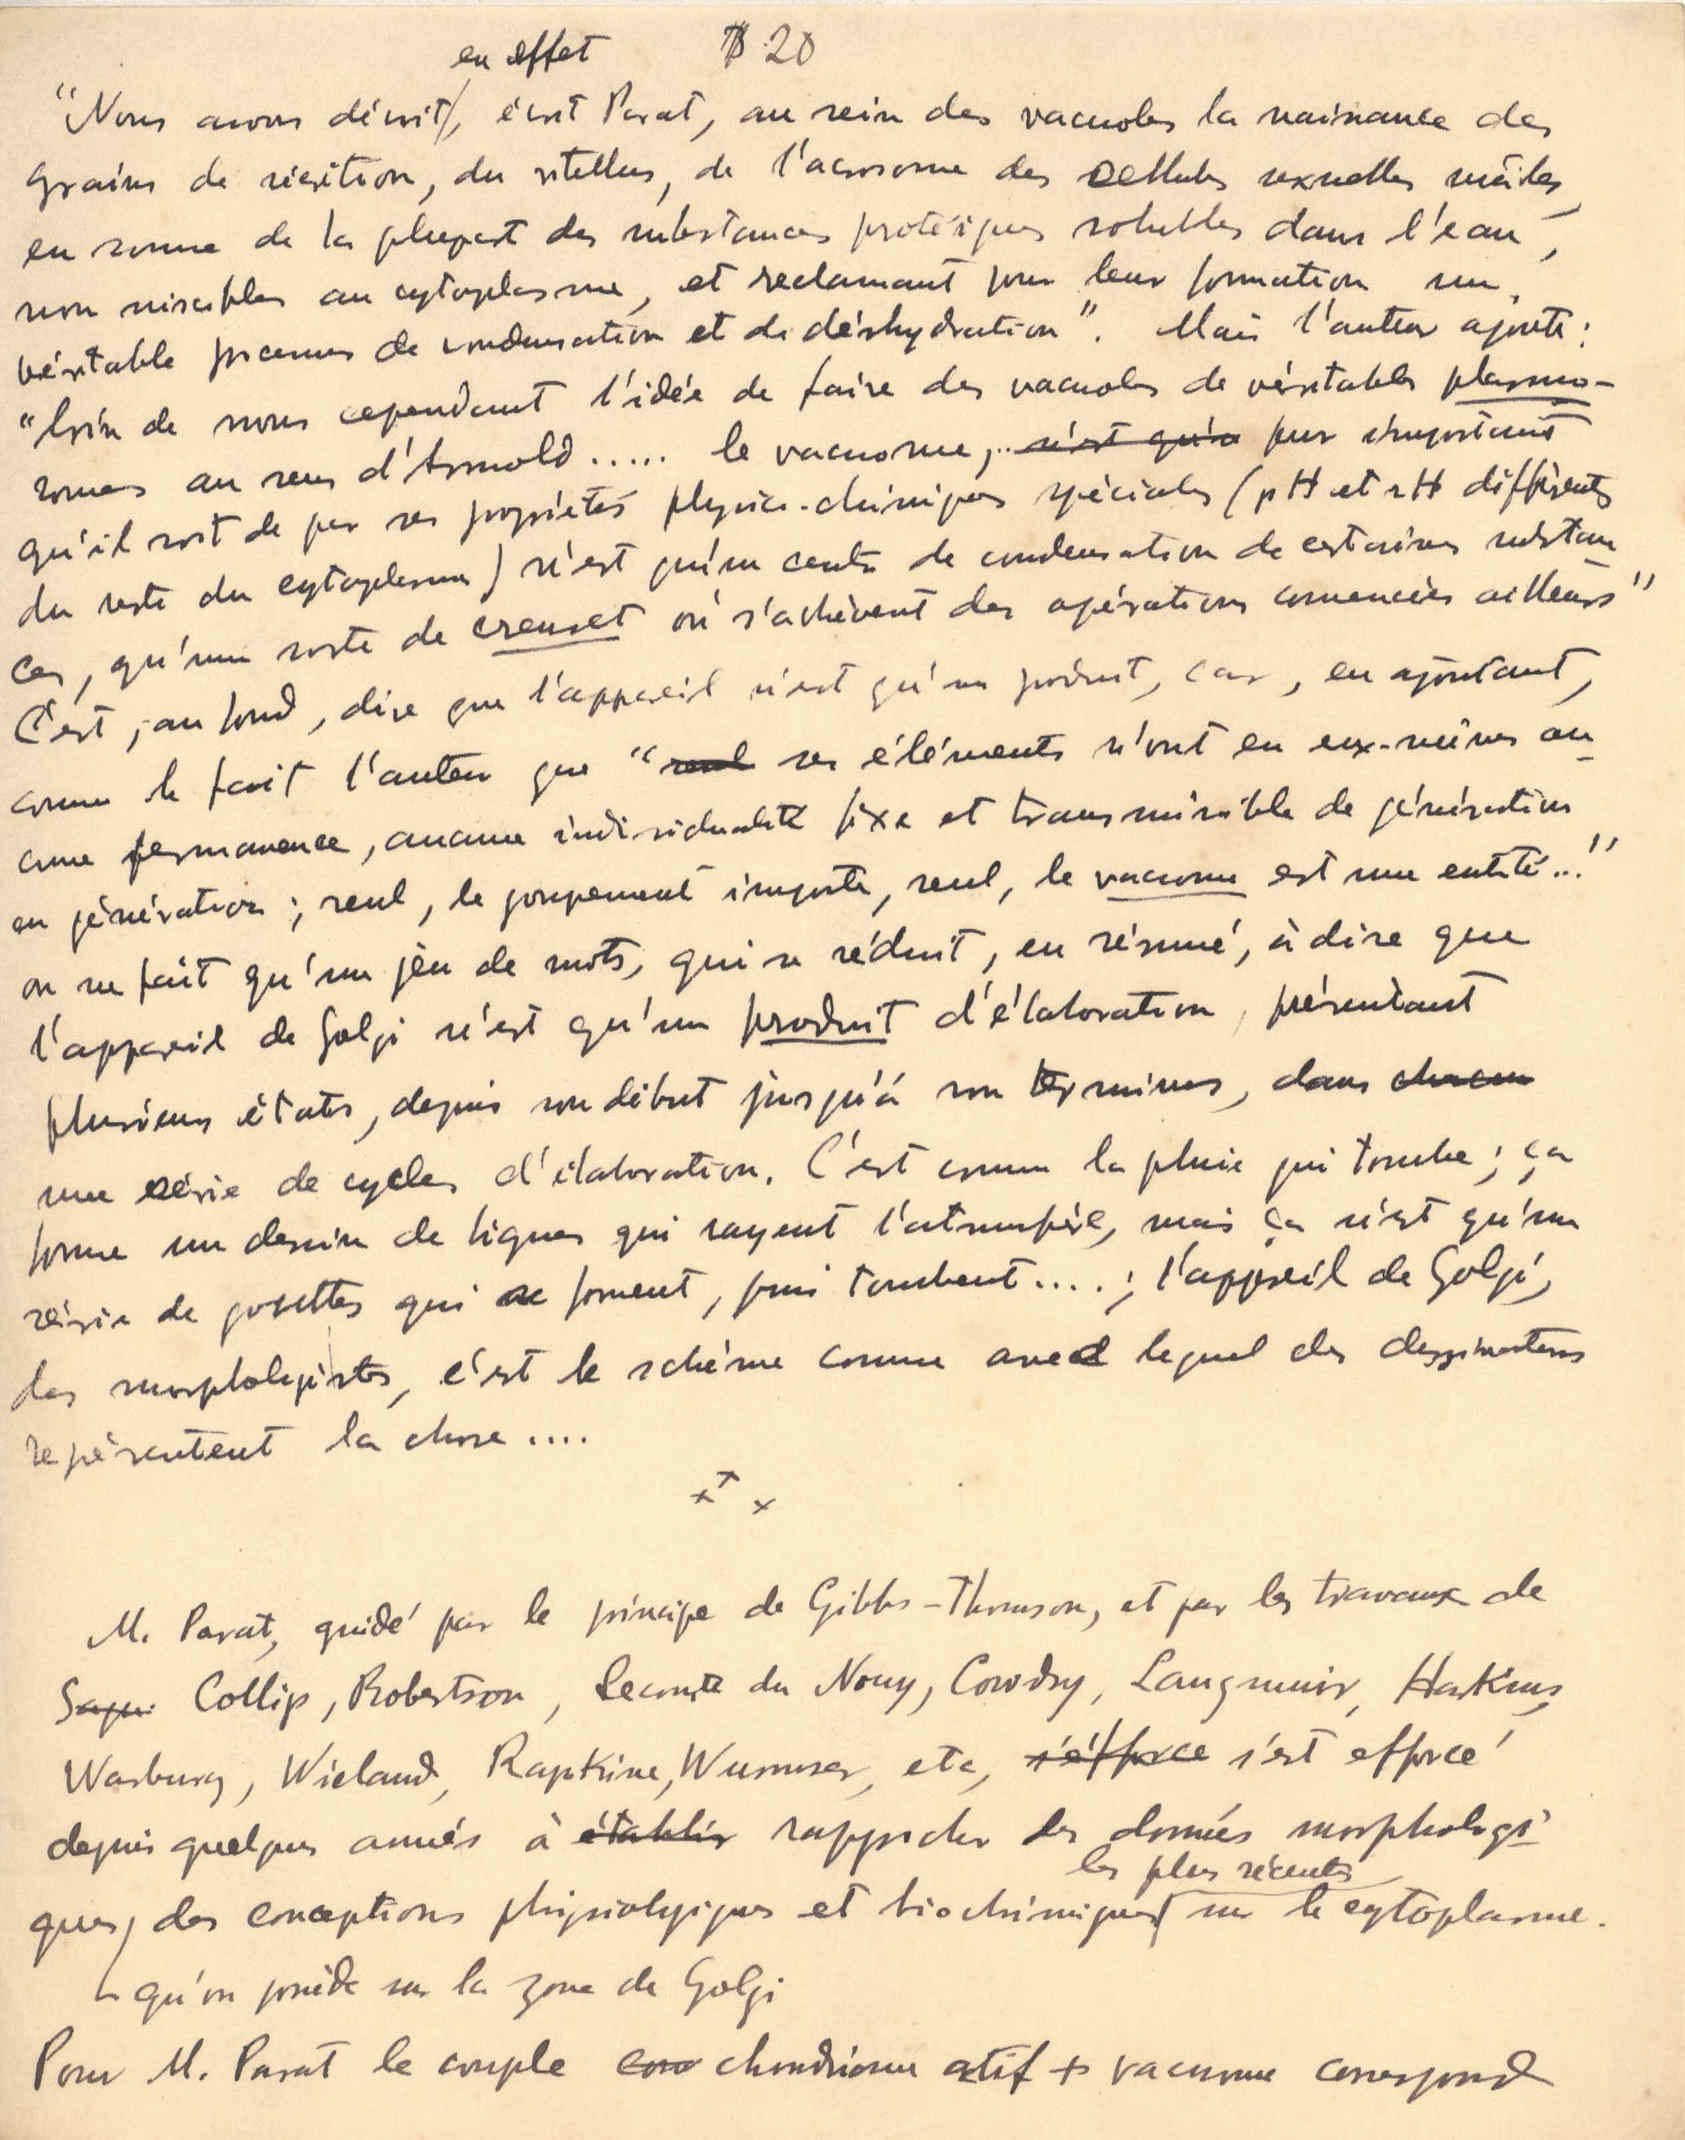 en effet 20
"Nous avons décrit, écrit Parat, au sein des vacuoles la naissance des
grains de sécrétion, du vitellus, de l'acrosome des cellules sexuelles mâles,
en somme de la plupart des substances protéiques solubles dans l'eau,
non miscibles au cytoplasme, et reclamant pour leur formation un
véritable processus de condensation et de déshydration". Mais l'auteur ajoute:
"loin de nous cependant l'idée de faire des vacuoles de véritables plasmo-
somes au sens d'Arnold ..... le vacuome, n'est qu'un pur important
qu'il soit de par ses propriétés physico-chimiques spéciales (pH et rH différents
du reste du cytoplasme) n'est qu'un centre de condensation de certaines substan
ces, qu'une sorte de creuset où s'achèvent des opérations comencées ailleurs"
C'est, au fond, dire que l'appareil n'est qu'un produit, car, en ajoutant,
comme le fait l'auteur que "seul ses éléments n'ont en eux-mêmes au-
cune permanence, aucune individualité fixe et transmissible de génération
en génération; seul, le groupement importe, seul, le vacuome est une entité..."
on ne fait qu'un jeu de mots, qui se réduit, en résumé, à dire que
l'appareil de Golgi n'est qu'un produit d'élaboration, présentant
plusieurs états, depuis son début jusqu'à son terminus, dans chacun
une série de cycles d'élaboration. C'est comme la pluie qui tombe; ça
forme un dessin de lignes qui rayent l'atmosfère, mais ça n'est qu'une
série de gouttes qui se forment, puis tombent....; l'appareil de Golgi,
des morphologistes, c'est le schéme comme avec lequel des dessinateurs
représentent la chose ....
+ + x
M. Parat, guidé par le principe de Gibbs-Thomson, et par les travaux de
Collip, Robertson, Lecomte du Nouy, Cowdry, Langmuir, Harkins,
Warburg, Wieland, Rapkine, Wurmser, etc, s'éfforce s'est efforcé
depuis quelques années à établir rapprocher des données morphologi-
les plus récentes
ques, des conceptions phisiologiques et biochimiques sur le cytoplasme.
qu'on posséde sur la zone de Golgi
Pour M. Parat le couple chondriome actif + vacuome correspond